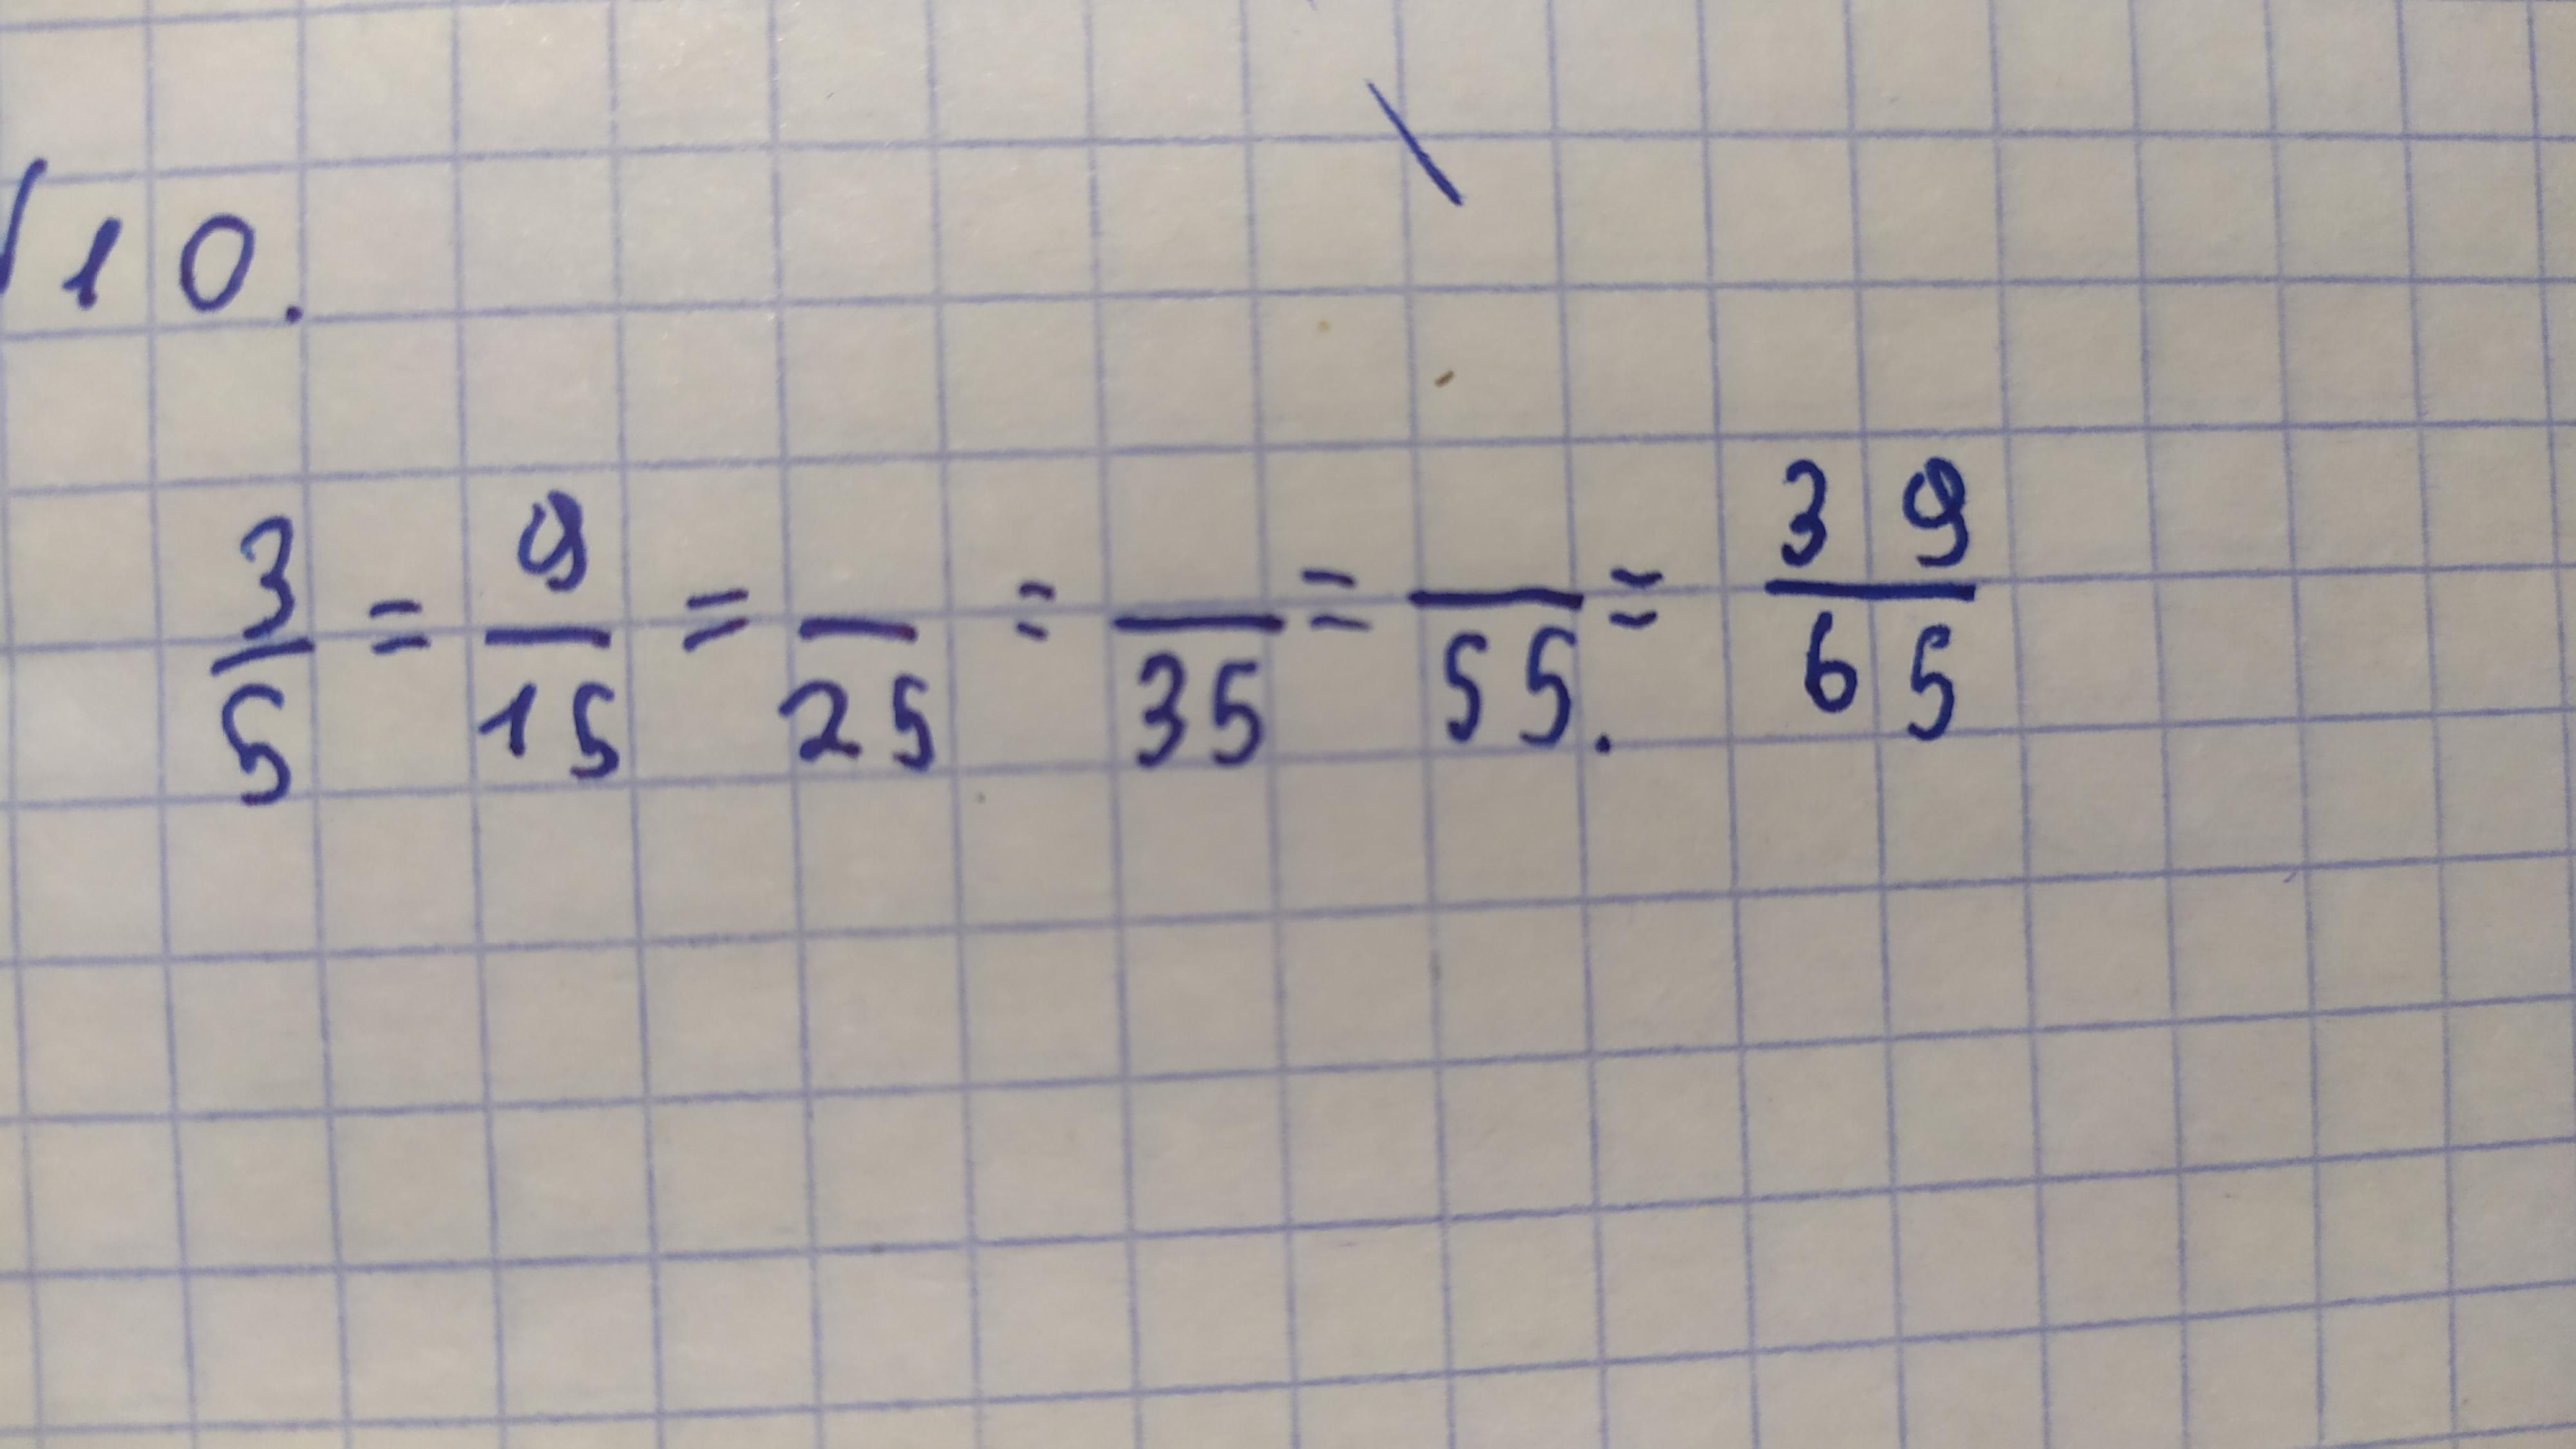 10.
3/5 = 9/15 = /25 = /35 = /55. = 39/65